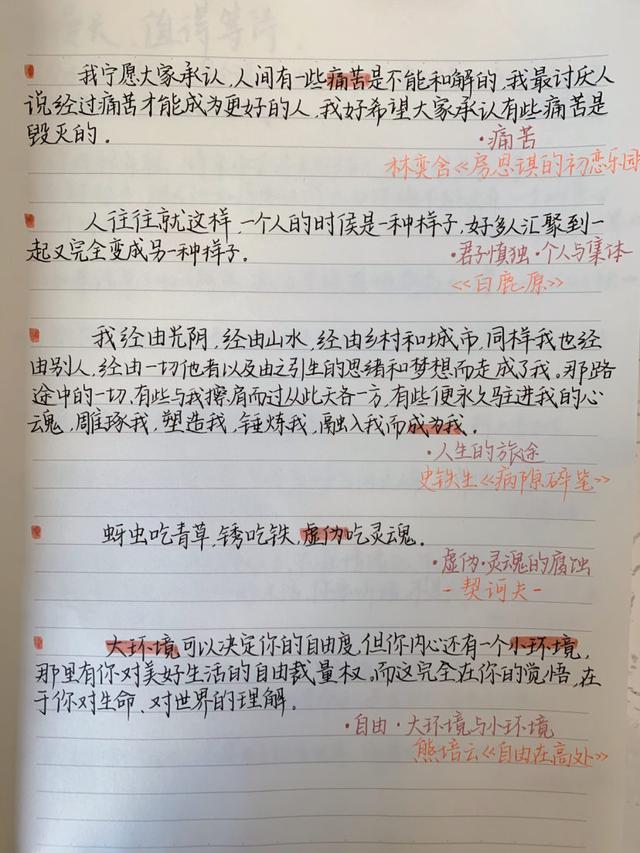 我宁愿大家承认,人间有一些痛苦是不能和解的,我最讨厌人
说经过痛苦才能成为更好的人,我好希望大家承认有些痛苦是
毁灭的.
·痛苦
林奕含《房思琪的初恋乐园
人往往就这样,一个人的时候是一种样子,好多人汇聚到一
起又完全变成另一种样子.
·君子慎独·个人与集体
《白鹿原》
我经由光阴,经由山水,经由乡村和城市,同样我也经
由别人,经由一切他者以及由之引生的思绪和梦想而走成了我.那路
途中的一切,有些与我擦肩而过从此天各一方,有些便永久驻进我的心
魂,雕琢我,塑造我,锤炼我,融入我而成为我.
·人生的旅途
史铁生《病隙碎笔》
蚜虫吃青草,锈吃铁,虚伪吃灵魂.
·虚伪·灵魂的腐蚀
-契诃夫-
大环境可以决定你的自由度,但你内心还有一个小环境,
那里有你对美好生活的自由裁量权.而这完全在你的觉悟,在
于你对生命、对世界的理解.
·自由·大环境与小环境
熊培云《自由在高处》